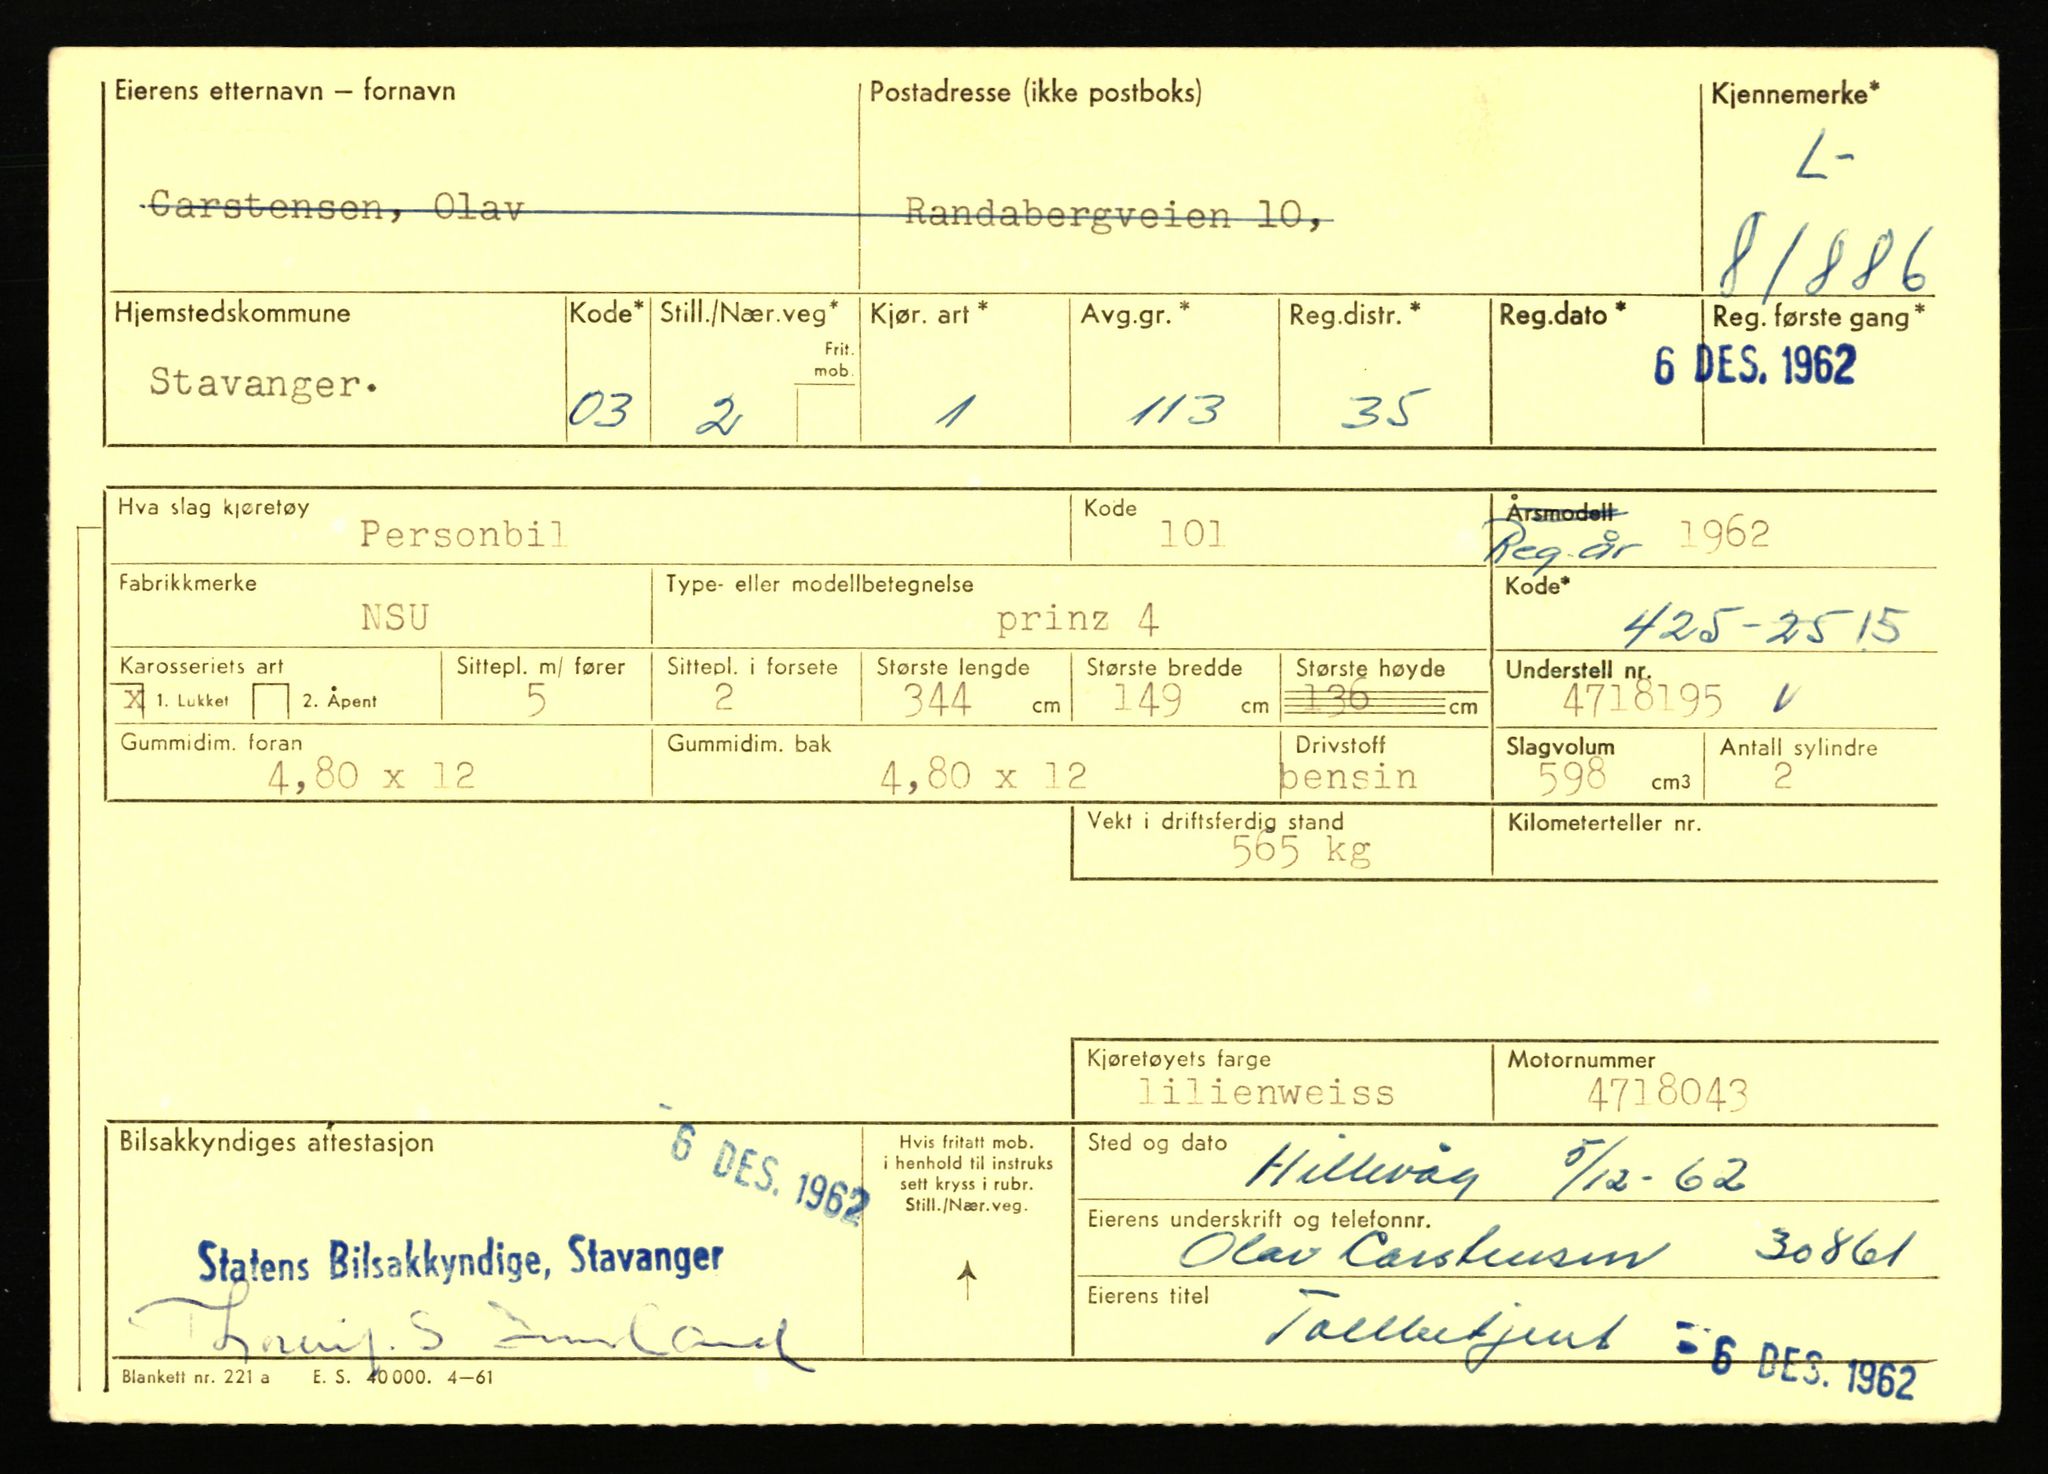 Eierens etternavn – fornavn
Postadresse (ikke postboks)
Kjennemerke*
L-
Carstensen, Olav
Randabergveien 10,
81886
Hjemstedskommune
Kode*
Still./Nær.veg*
Kjør. art*
Avg.gr.*
Reg.distr.*
Reg.dato*
Reg. første gang*
Frit.
mob.
Stavanger.
03
2
1
113
35
6 DES. 1962
Hva slag kjøretøy
Personbil
Kode
101
Årsmodell
Reg. år
1962
Fabrikkmerke
NSU
Type- eller modellbetegnelse
prinz 4
Kode*
425-2515
Karosseriets art
x 1. Lukket
2. Åpent
Sittepl. m/ fører
5
Sittepl. i forsete
2
Største lengde
344 cm
Største bredde
149 cm
Største høyde
136 cm
Understell nr.
4718195 v
Gummidim. foran
4,80 x 12
Gummidim. bak
4,80 x 12
Drivstoff
bensin
Slagvolum
598 cm3
Antall sylindre
2
Vekt i driftsferdig stand
565 kg
Kilometerteller nr.
Kjøretøyets farge
lilienweiss
Motornummer
4718043
Bilsakkyndiges attestasjon
6 DES. 1962
Statens Bilsakkyndige, Stavanger
Hvis fritatt mob.
i henhold til instruks
sett kryss i rubr.
Still./Nær.veg.
Sted og dato
Hillevåg 5/12-62
Eierens underskrift og telefonnr.
Olav Carstensen 30861
Eierens titel
Tollbetjent
6 DES. 1962
Blankett nr. 221 a E. S. 40 000. 4–61